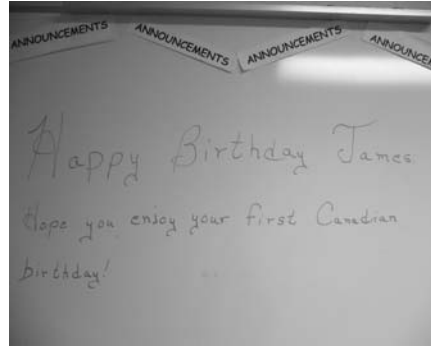 ANNOUNCEMENTS ANNOUNCEMENTS ANNOUNCEMENTS ANNOUNCEM
Happy Birthday James
Hope you enjoy your first Canadian
birthday!